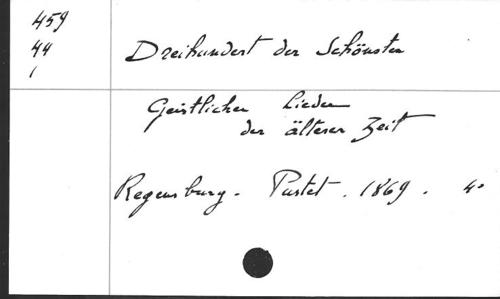 459
44
1
Dreihundert der Schönsten
Geistlicher Lieder
der älterer Zeit
Regensburg. Pustet. 1869. 4°